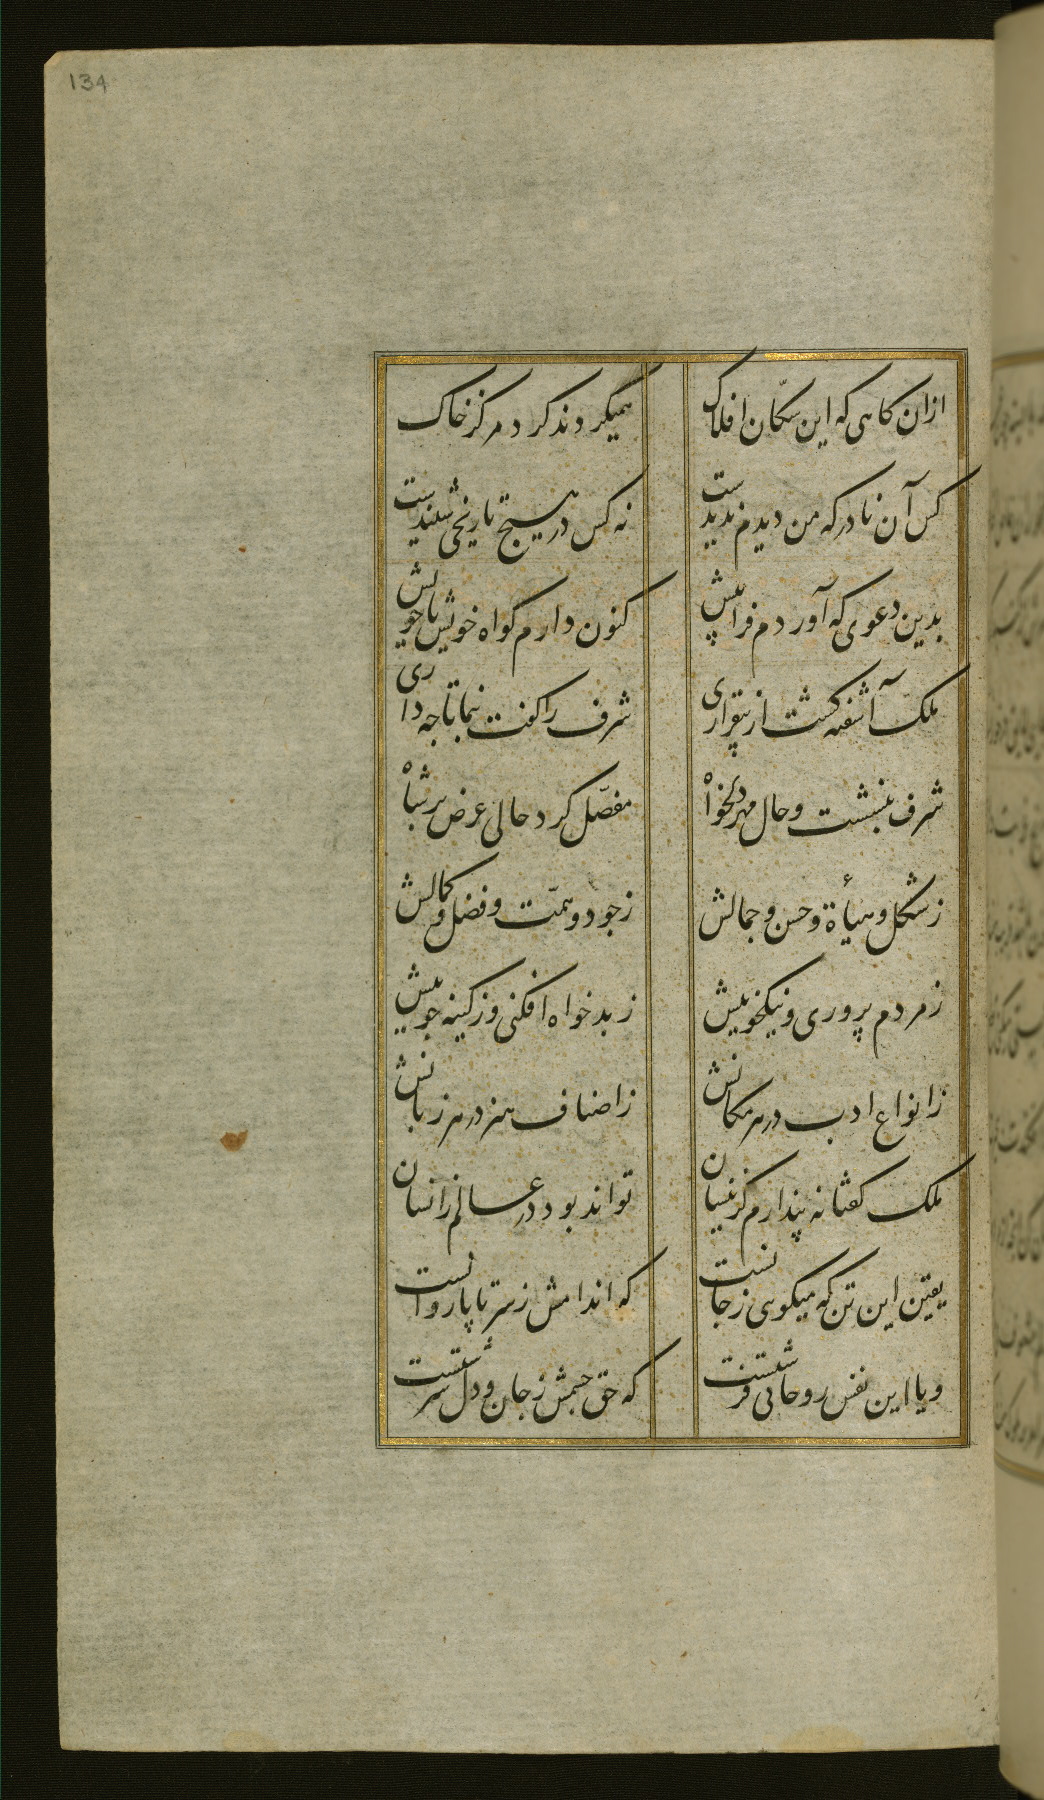 134
ازان کاهی که این سکّان افلاک
همیگردند کرد مرکز خاک
کس آن نادر که من دیدم ندیدست
نه کس در هیچ تاریخی شنیدست
بدین دعوی که آوردم فراپیش
کنون دارم کواه خویش با خویش
ملک آشفته کشت از بیقراری
شرف را کفت بنما تا چه داری
شرف بنشست و حال مهر دلخواه
مفصّل کرد حالی عرض بر شاه
ز شکل و هیأة و حسن و جمالش
ز جود و همّت و فضل و کمالش
ز مردم پروری و نیکخوییش
ز بدخواه افکنی وز کینه جوییش
ز انواع ادب در هر مکانش
ز اصناف هنر در هر زبانش
ملک کفتا نه پندارم کزینسان
تواند بود در عالم ز انسان
یقین این تن که میکویی ز جانست
که اندامش ز سر تا پا روانست
و یا این نفس روحانی فرشتست
که حق جسمش ز جان و دل سرشتست